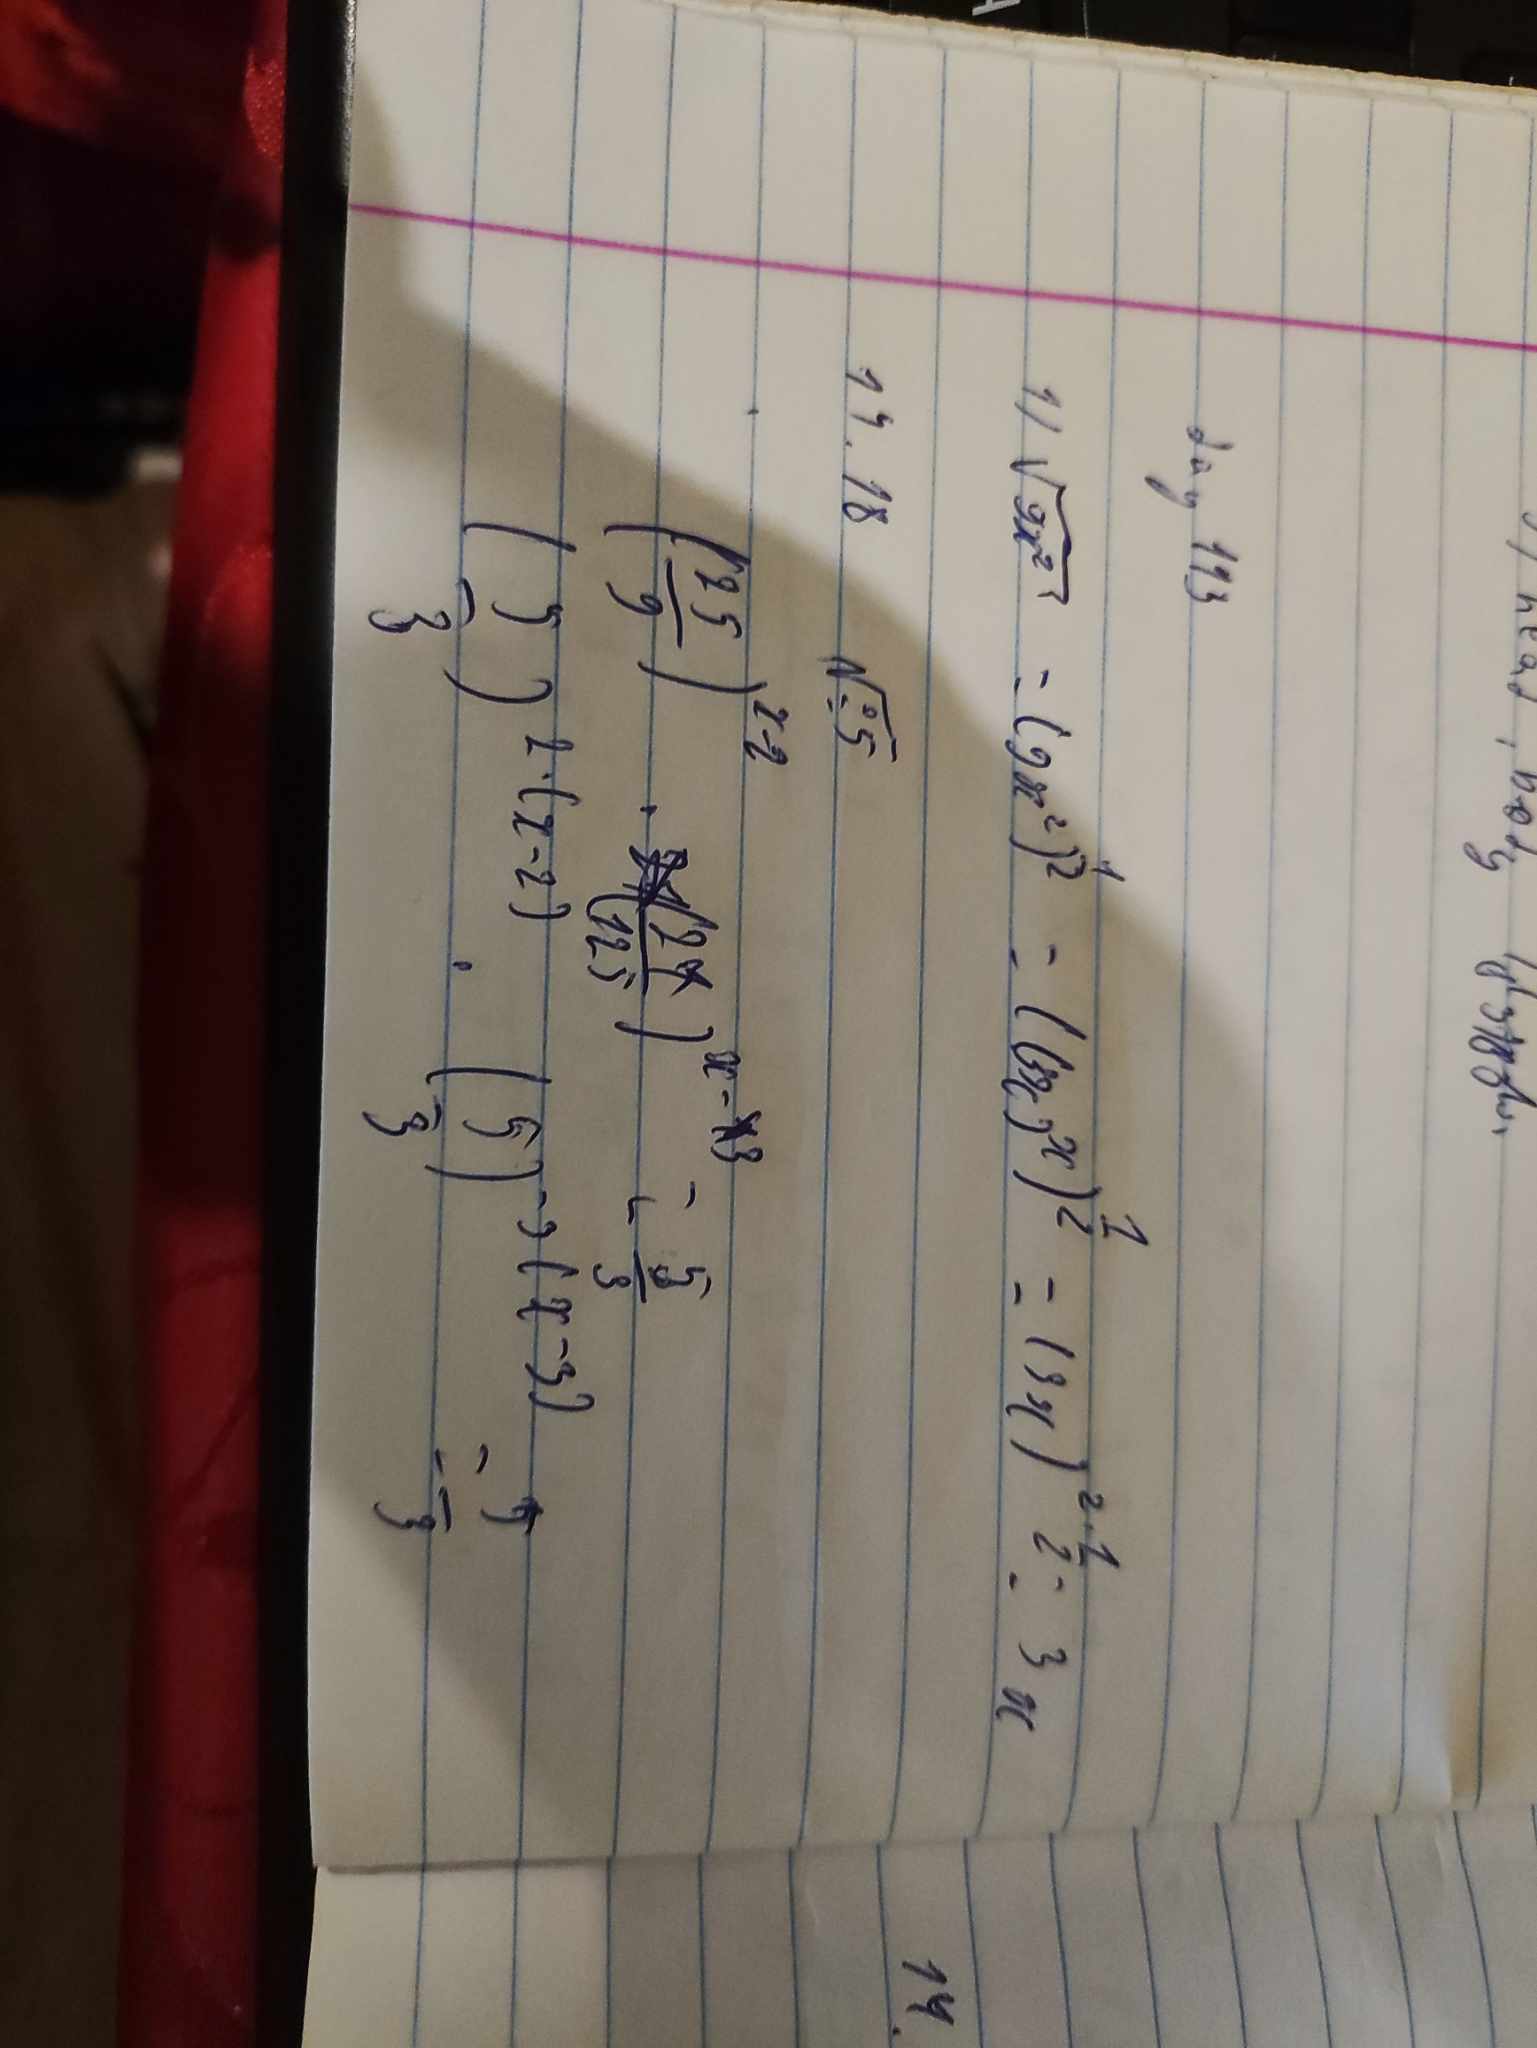 day 193
1) √9x² = (9x²)^1/2 = ((3x)^x)^1/2 = (3x)^2·1/2 = 3x
14.18 №:5
(25/9)^x-2 · (27/125)^x-3 = 5/3
(5/3)^2·(x-2) · (5/3)^-3(x-3) = 5/3
14.